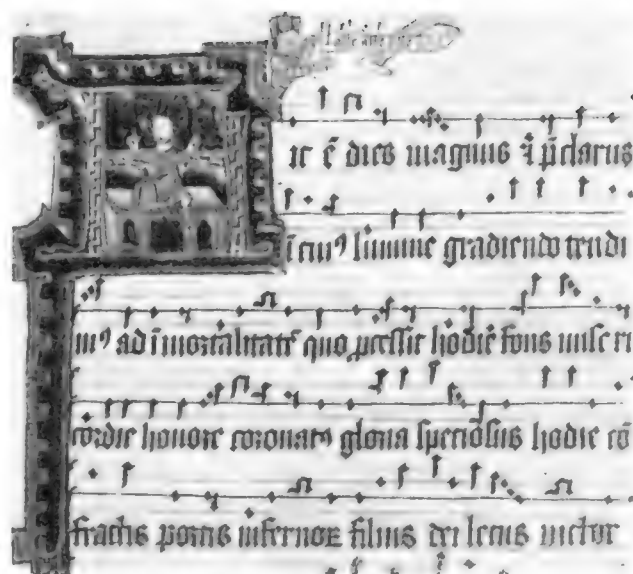 ic ē dies magnus ⁊ p̄clarus
ī cuiꝰ lumine gradiendo tendi
mꝰ ad īmortalitatē quo ꝓcessit hodie fons mise ri
cordie honore coronatꝰ gloria speciosus hodie cō
fractis portis infernoꝝ filius dei letus victor